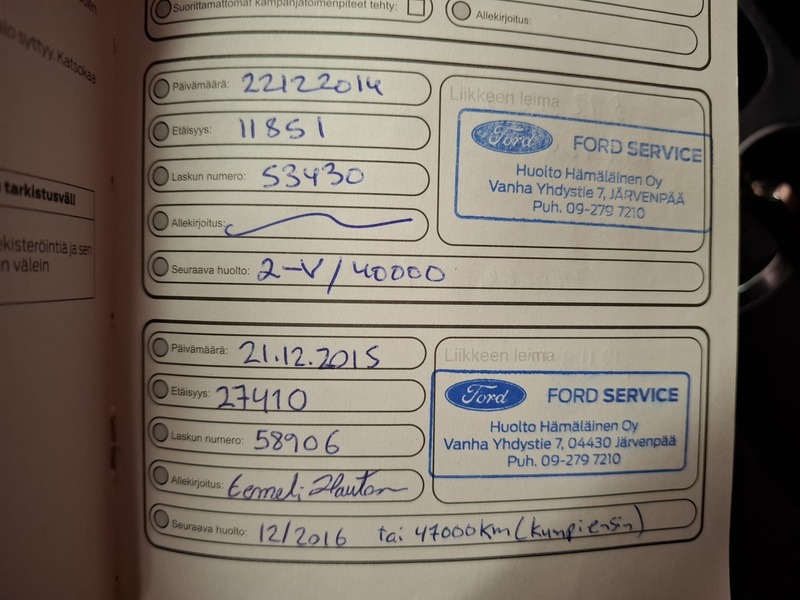 Suorittamattomat kampanjatoimenpiteet tehty:
Allekirjoitus:
alo syttyy. Katsokaa
tarkistusväli
ekisteröintiä ja sen
n välein
Päivämäärä: 22122014
Etäisyys: 11851
Laskun numero: 53430
Allekirjoitus:
Seuraava huolto: 2-V/40000
Liikkeen leima
Ford FORD SERVICE
Huolto Hämäläinen Oy
Vanha Yhdystie 7, JÄRVENPÄÄ
Puh. 09-279 7210
Päivämäärä: 21.12.2015
Etäisyys: 27410
Laskun numero: 58906
Allekirjoitus: Eemeli
Seuraava huolto: 12/2016 tai 47000km (kumpi ensin)
Liikkeen leima
Ford FORD SERVICE
Huolto Hämäläinen Oy
Vanha Yhdystie 7, 04430 Järvenpää
Puh. 09-279 7210